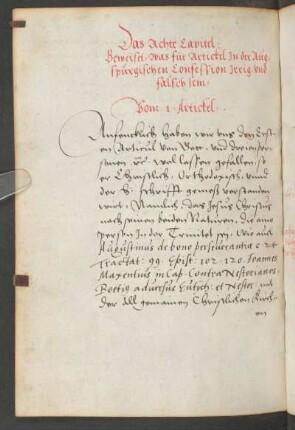 Das Achte Capitel
Beweiset, was für Artickel In der Aug-
spurgischen Confession Irrig und
falsch sein.
Vom 1 Artickel.
Anfencklich haben wir uns den Ersten
Articul von Gott, und dreien per-
sonen wol lassen gefallen, so
er Christlich, Orthodoxisch, unnd
der h. schrifft gemess verstanden
wirt, Namlich das Jesus Christus
nach seinen beiden Naturen, die ein
person In der Trinitet sey, wie auch
Augustinus de bono perseuerantiæ c 24
Tractat: 99. Epist: 102. 120. Ioannes
Maxentius in Cap. Contra Nestorianos.
Boetius aduersus Eutych: et Nestor: mit
der allgemainen Christlichen Kirch-
en